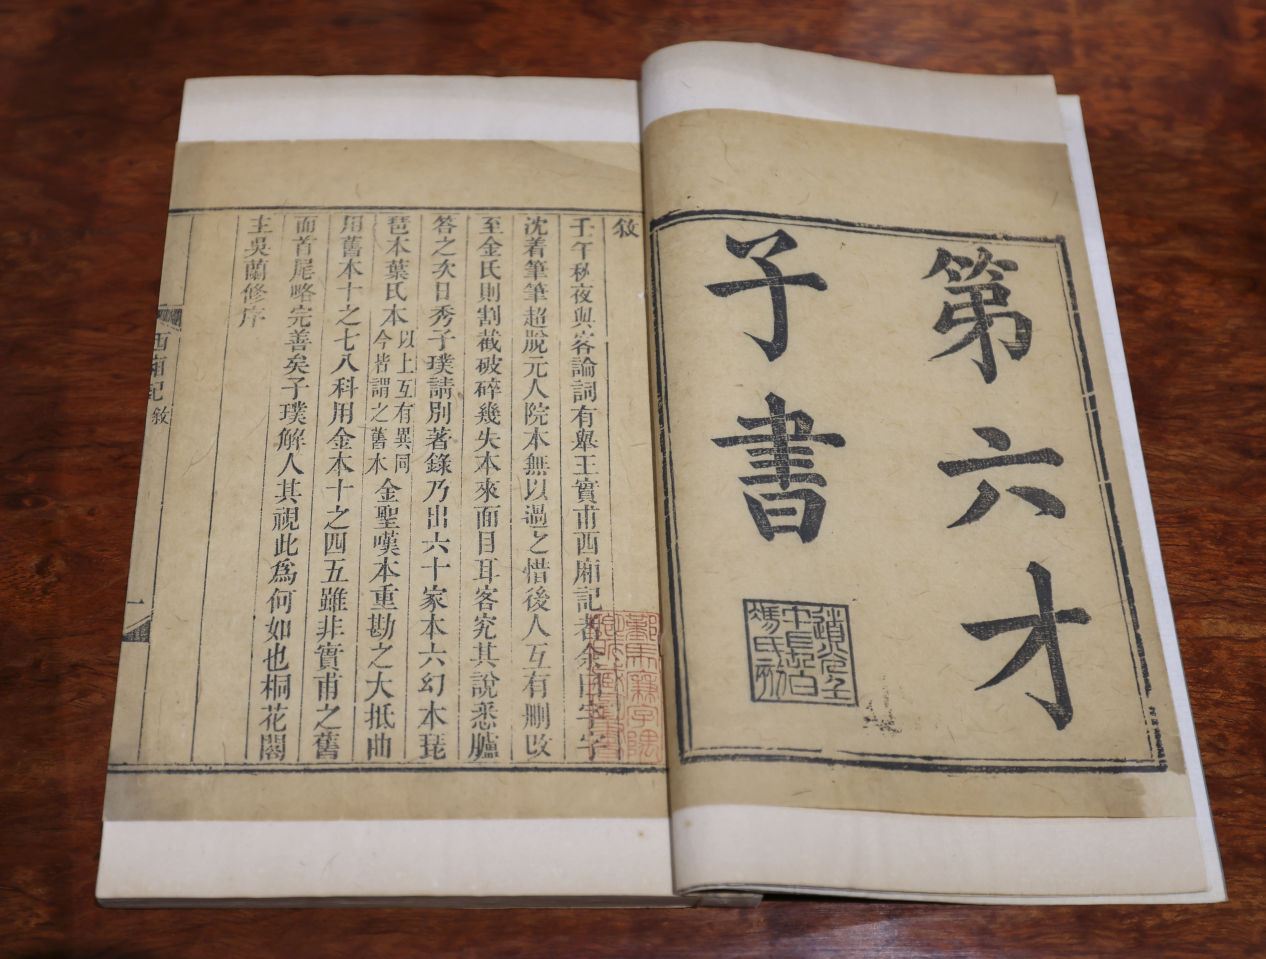 第六才
子書
敘
壬午秋夜與客論詞有舉王實甫西廂記者余曰字字
沈着筆筆超脫元人院本無以過之惜後人互有刪改
至金氏則割截破碎幾失本來面目耳客究其說悉臚
答之次日秀子璞請別著錄乃出六十家本六幻本琵
琶本葉氏本以上互有異同今皆謂之舊本金聖嘆本重勘之大抵曲
用舊本十之七八科用金本十之四五雖非實甫之舊
而首尾略完善矣子璞解人其視此爲何如也桐花閣
主吳蘭修序
西廂記
敘
一